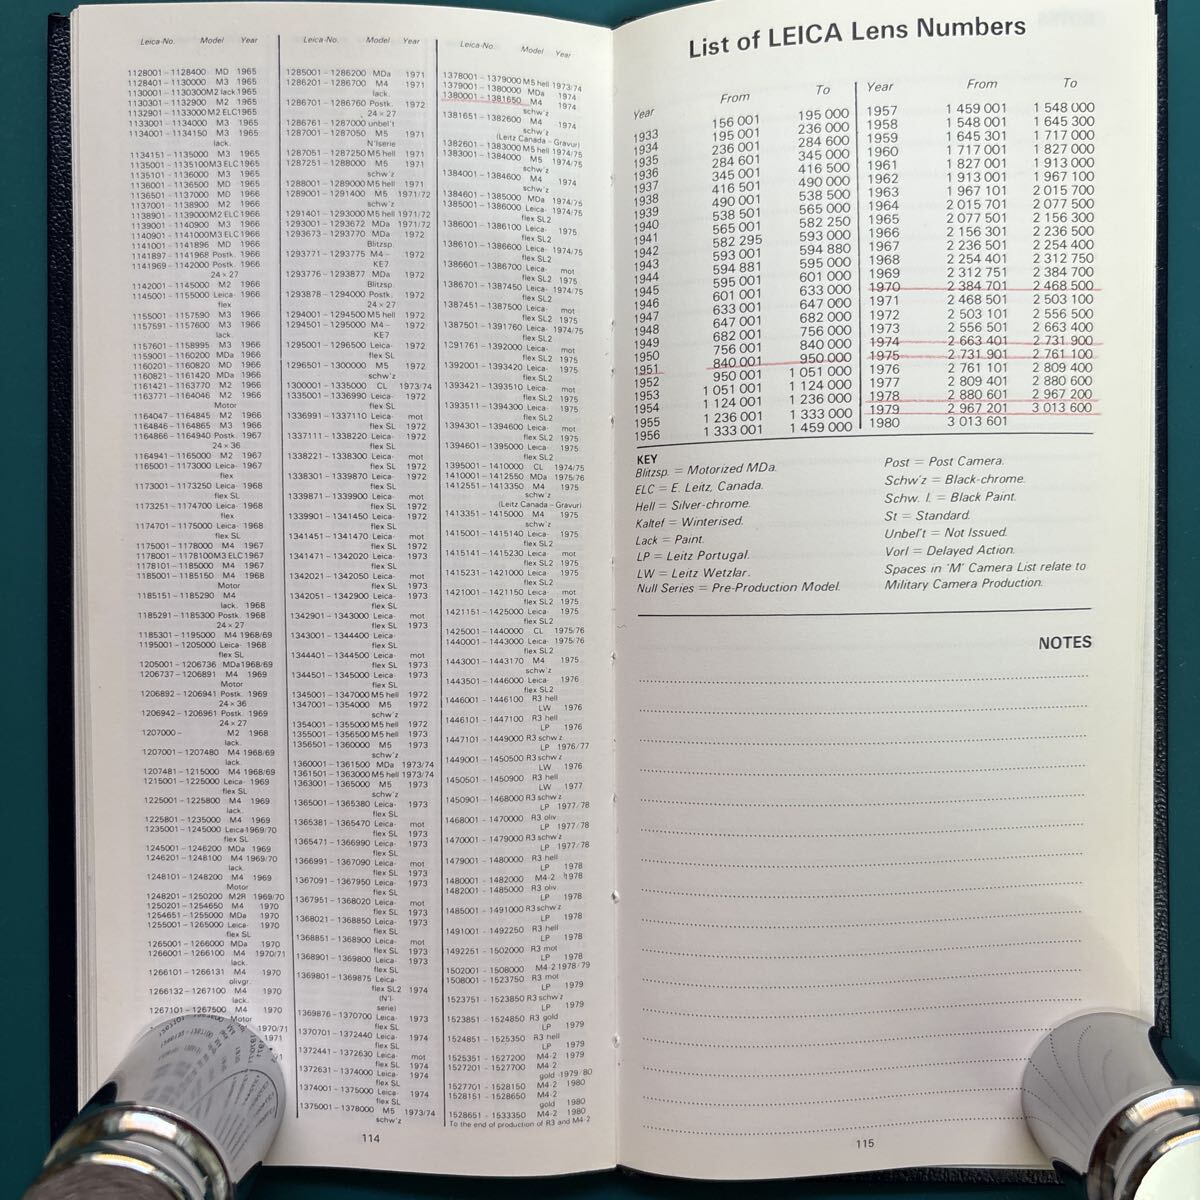 Leica-No. Model Year
1128001 – 1128400 MD 1965
1128401 – 1130000 M3 1965
1130001 – 1130300 M2 lack 1965
1130301 – 1132900 M2 1965
1132901 – 1133000 M2 ELC 1965
1133001 – 1134000 M3 1965
1134001 – 1134150 M3 1965
lack.
1134151 – 1135000 M3 1965
1135001 – 1135100 M3 ELC 1965
1135101 – 1136000 M3 1965
1136001 – 1136500 MD 1966
1136501 – 1137000 MD 1966
1137001 – 1138900 M2 1966
1138901 – 1139000 M2 ELC 1966
1139001 – 1140900 M3 1966
1140901 – 1141000 M3 ELC 1966
1141001 – 1141896 MD 1966
1141897 – 1141968 Postk. 1966
1141969 – 1142000 Postk. 1966
24 × 27
1142001 – 1145000 M2 1966
1145001 – 1155000 Leica- 1966
flex
1155001 – 1157590 M3 1966
1157591 – 1157600 M3 1966
lack.
1157601 – 1158995 M3 1966
1159001 – 1160200 MDa 1966
1160201 – 1160820 MD 1966
1160821 – 1161420 MDa 1966
1161421 – 1163770 M2 1966
1163771 – 1164046 M2 1966
Motor
1164047 – 1164845 M2 1966
1164846 – 1164865 M3 1966
1164866 – 1164940 Postk. 1967
24 × 36
1164941 – 1165000 M2 1967
1165001 – 1173000 Leica- 1967
flex
1173001 – 1173250 Leica- 1968
flex SL
1173251 – 1174700 Leica- 1968
flex
1174701 – 1175000 Leica- 1968
flex SL
1175001 – 1178000 M4 1967
1178001 – 1178100 M3 ELC 1967
1178101 – 1185000 M4 1967
1185001 – 1185150 M4 1968
Motor
1185151 – 1185290 M4
lack. 1968
1185291 – 1185300 Postk. 1968
24 × 27
1185301 – 1195000 M4 1968/69
1195001 – 1205000 Leica- 1968
flex SL
1205001 – 1206736 MDa 1968/69
1206737 – 1206891 M4 1969
Motor
1206892 – 1206941 Postk. 1969
24 × 36
1206942 – 1206961 Postk. 1969
24 × 27
1207000 – M2 1968
lack.
1207001 – 1207480 M4 1968/69
lack.
1207481 – 1215000 M4 1968/69
1215001 – 1225000 Leica- 1969
flex SL
1225001 – 1225800 M4 1969
lack.
1225801 – 1235000 M4 1969
1235001 – 1245000 Leica 1969/70
flex SL
1245001 – 1246200 MDa 1969
1246201 – 1248100 M4 1969/70
lack.
1248101 – 1248200 M4 1969
Motor
1248201 – 1250200 M2R 1969/70
1250201 – 1254650 M4 1970
1254651 – 1255000 MDa 1970
1255001 – 1265000 Leica- 1970
flex SL
1265001 – 1266000 MDa 1970
1266001 – 1266100 M4 1970/71
lack.
1266101 – 1266131 M4 1970
olivgr.
1266132 – 1267100 M4 1970
lack.
1267101 – 1267500 M4 1970
Motor
1970/71
1971
Leica-No. Model Year
1285001 – 1286200 MDa 1971
1286201 – 1286700 M4 1971
lack.
1286701 – 1286760 Postk. 1972
24 × 27
1286761 – 1287000 unbel't
1287001 – 1287050 M5 1971
N'lserie
1287051 – 1287250 M5 hell 1971
1287251 – 1288000 M5 1971
schw'z
1288001 – 1289000 M5 hell 1971
1289001 – 1291400 M5 1971/72
schw'z
1291401 – 1293000 M5 hell 1971/72
1293001 – 1293672 MDa 1971/72
1293673 – 1293770 MDa 1972
Blitzsp.
1293771 – 1293775 M4 – 1972
KE7
1293776 – 1293877 MDa 1972
Blitzsp.
1293878 – 1294000 Postk. 1972
24 × 27
1294001 – 1294500 M5 hell 1972
1294501 – 1295000 M4 – 1972
KE7
1295001 – 1296500 Leica- 1972
flex SL
1296501 – 1300000 M5 1972
schw'z
1300001 – 1335000 CL 1973/74
1335001 – 1336990 Leica- 1972
flex SL
1336991 – 1337110 Leica- mot
flex SL 1972
1337111 – 1338220 Leica- 1972
flex SL
1338221 – 1338300 Leica- mot
flex SL 1972
1338301 – 1339870 Leica- 1972
flex SL
1339871 – 1339900 Leica- mot
flex SL 1972
1339901 – 1341450 Leica- 1972
flex SL
1341451 – 1341470 Leica- mot
flex SL 1972
1341471 – 1342020 Leica- 1973
flex SL
1342021 – 1342050 Leica- mot
flex SL 1973
1342051 – 1342900 Leica- 1973
flex SL
1342901 – 1343000 Leica- mot
flex SL 1973
1343001 – 1344400 Leica- 1973
flex SL
1344401 – 1344500 Leica- mot
flex SL 1973
1344501 – 1345000 Leica- 1973
flex SL
1345001 – 1347000 M5 hell 1972
1347001 – 1354000 M5 1972
schw'z
1354001 – 1355000 M5 hell 1972
1355001 – 1356500 M5 hell 1973
1356501 – 1360000 M5 1973
schw'z
1360001 – 1361500 MDa 1973/74
1361501 – 1363000 M5 hell 1973/74
1363001 – 1365000 M5 1973
schw'z
1365001 – 1365380 Leica- 1973
flex SL
1365381 – 1365470 Leica- mot
flex SL 1973
1365471 – 1366990 Leica- 1973
flex SL
1366991 – 1367090 Leica- mot
flex SL 1973
1367091 – 1367950 Leica- 1973
flex SL
1367951 – 1368020 Leica- mot
flex SL 1973
1368021 – 1368850 Leica- 1973
flex SL
1368851 – 1368900 Leica- mot
flex SL 1973
1368901 – 1369800 Leica- 1973
flex SL
1369801 – 1369875 Leica-
flex SL2 1974
(N'l-
serie)
1369876 – 1370700 Leica- 1973
flex SL
1370701 – 1372440 Leica- 1974
flex SL
1372441 – 1372630 Leica- mot
flex SL 1974
1372631 – 1374000 Leica- 1974
flex SL
1374001 – 1375000 Leica- 1974
flex SL
1375001 – 1378000 M5 1973/74
schw'z
Leica-No. Model Year
1378001 – 1379000 M5 hell 1973/74
1379001 – 1380000 MDa 1974
1380001 – 1381650 M4 1974
schw'z
1381651 – 1382600 M4 1974
schw'z
(Leitz Canada – Gravur)
1382601 – 1383000 M5 hell 1974/75
1383001 – 1384000 M5 1974/75
schw'z
1384001 – 1384600 M4 1974
schw'z
1384601 – 1385000 MDa 1974/75
1385001 – 1386000 Leica- 1974/75
flex SL2
1386001 – 1386100 Leica- 1975
flex SL2
1386101 – 1386600 Leica- 1974/75
flex SL2
1386601 – 1386700 Leica- mot
flex SL2 1975
1386701 – 1387450 Leica- 1974/75
flex SL2
1387451 – 1387500 Leica- mot
flex SL2 1975
1387501 – 1391760 Leica- 1974/75
flex SL2
1291761 – 1392000 Leica- mot
flex SL2 1975
1392001 – 1393420 Leica- 1975
flex SL2
1393421 – 1393510 Leica- mot
flex SL2 1975
1393511 – 1394300 Leica- 1975
flex SL2
1394301 – 1394600 Leica- mot
flex SL2 1975
1394601 – 1395000 Leica- 1975
flex SL2
1395001 – 1410000 CL 1974/75
1410001 – 1412550 MDa 1975/76
1412551 – 1413350 M4 1975
schw'z
(Leitz Canada – Gravur)
1413351 – 1415000 M4 1975
schw'z
1415001 – 1415140 Leica- 1975
flex SL2
1415141 – 1415230 Leica- mot
flex SL2 1975
1415231 – 1421000 Leica- 1975
flex SL2
1421001 – 1421150 Leica- mot
flex SL2 1975
1421151 – 1425000 Leica- 1975
flex SL2
1425001 – 1440000 CL 1975/76
1440001 – 1443000 Leica- 1975/76
flex SL2
1443001 – 1443170 M4 1975
schw'z
1443501 – 1446000 Leica- 1976
flex SL2
1446001 – 1446100 R3 hell
LW 1976
1446101 – 1447100 R3 hell
LP 1976
1447101 – 1449000 R3 schw'z
LP 1976/77
1449001 – 1450500 R3 schw'z
LW 1976
1450501 – 1450900 R3 hell
LW 1977
1450901 – 1468000 R3 schw'z
LP 1977/78
1468001 – 1470000 R3 oliv
LP 1977/78
1470001 – 1479000 R3 schw'z
LP 1977/78
1479001 – 1480000 R3 hell
LP 1978
1480001 – 1482000 M4-2 1978
1482001 – 1485000 R3 oliv
LP 1978
1485001 – 1491000 R3 schw'z
LP 1978
1491001 – 1492250 R3 hell
LP 1978
1492251 – 1502000 R3 mot
LP 1978
1502001 – 1508000 M4-2 1978/79
1508001 – 1523750 R3 mot
LP 1979
1523751 – 1523850 R3 schw'z
LP 1979
1523851 – 1524850 R3 gold
LP 1979
1524851 – 1525350 R3 hell
LP 1979
1525351 – 1527200 M4-2 1979
1527201 – 1527700 M4-2
gold 1979/80
1527701 – 1528150 M4-2 1980
1528151 – 1528650 M4-2
gold 1980
1528651 – 1533350 M4-2 1980
To the end of production of R3 and M4-2
114
List of LEICA Lens Numbers
Year From To
1933 156 001 195 000
1934 195 001 236 000
1935 236 001 284 600
1936 284 601 345 000
1937 345 001 416 500
1938 416 501 490 000
1939 490 001 538 500
1940 538 501 565 000
1941 565 001 582 250
1942 582 295 593 000
1943 593 001 594 880
1944 594 881 595 000
1945 595 001 601 000
1946 601 001 633 000
1947 633 001 647 000
1948 647 001 682 000
1949 682 001 756 000
1950 756 001 840 000
1951 840 001 950 000
1952 950 001 1 051 000
1953 1 051 001 1 124 000
1954 1 124 001 1 236 000
1955 1 236 001 1 333 000
1956 1 333 001 1 459 000
Year From To
1957 1 459 001 1 548 000
1958 1 548 001 1 645 300
1959 1 645 301 1 717 000
1960 1 717 001 1 827 000
1961 1 827 001 1 913 000
1962 1 913 001 1 967 100
1963 1 967 101 2 015 700
1964 2 015 701 2 077 500
1965 2 077 501 2 156 300
1966 2 156 301 2 236 500
1967 2 236 501 2 254 400
1968 2 254 401 2 312 750
1969 2 312 751 2 384 700
1970 2 384 701 2 468 500
1971 2 468 501 2 503 100
1972 2 503 101 2 556 500
1973 2 556 501 2 663 400
1974 2 663 401 2 731 900
1975 2 731 901 2 761 100
1976 2 761 101 2 809 400
1977 2 809 401 2 880 600
1978 2 880 601 2 967 200
1979 2 967 201 3 013 600
1980 3 013 601
KEY
Blitzsp. = Motorized MDa.
ELC = E. Leitz, Canada.
Hell = Silver-chrome.
Kaltef = Winterised.
Lack = Paint.
LP = Leitz Portugal.
LW = Leitz Wetzlar.
Null Series = Pre-Production Model.
Post = Post Camera.
Schw'z = Black-chrome.
Schw. l. = Black Paint.
St = Standard.
Unbel't = Not Issued.
Vorl = Delayed Action.
Spaces in 'M' Camera List relate to
Military Camera Production.
NOTES
115